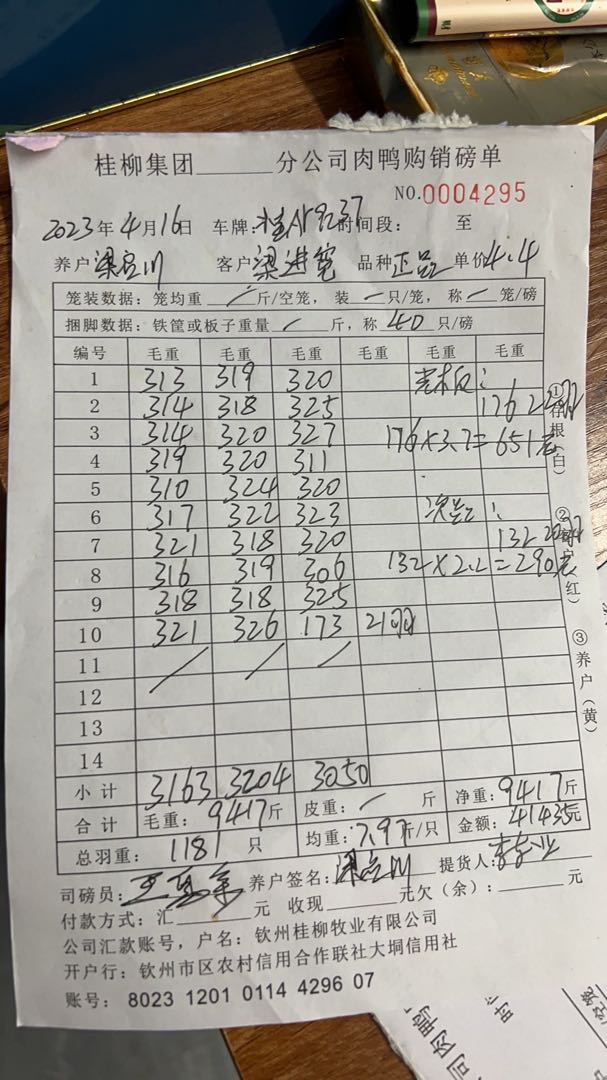 桂柳集团______分公司肉鸭购销磅单
NO.0004295
2023年4月16日 车牌: 时间段: 至
养户 客户 梁进宽 品种 正品 单价4.4
笼装数据: 笼均重 / 斤/空笼, 装 一 只/笼, 称 一 笼/磅
捆脚数据: 铁筐或板子重量 / 斤, 称 40 只/磅
编号 毛重 毛重 毛重 毛重 毛重 毛重
1 313 319 320
2 314 318 325 176
3 314 320 327 176×3.7=651
4 319 320 311
5 310 324 320
6 317 322 323 次品:
7 321 318 320 132
8 316 319 306 132×2.2=290
9 318 318 325
10 321 326 173 21羽
11 / / /
12
13
14
小计 3163 3204 3050
合计 毛重: 9417斤 皮重: / 斤 净重: 9417斤
总羽重: 1181 只 均重: 7.97斤/只 金额: 41435元
司磅员: 养户签名: 提货人:
付款方式: 汇______元 收现______元欠(余): ______元
公司汇款账号, 户名: 钦州桂柳牧业有限公司
开户行: 钦州市区农村信用合作联社大垌信用社
账号: 8023 1201 0114 4296 07
①存根(白)
②客户(红)
③养户(黄)